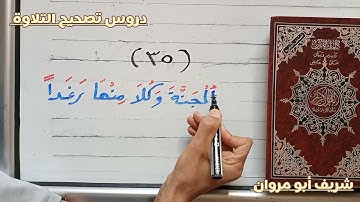 دروس تصحيح التلاوة
(٣٥)
ٱلْجَنَّةَ وَكُلَا مِنْهَا رَغَداً
شريف أبو مروان